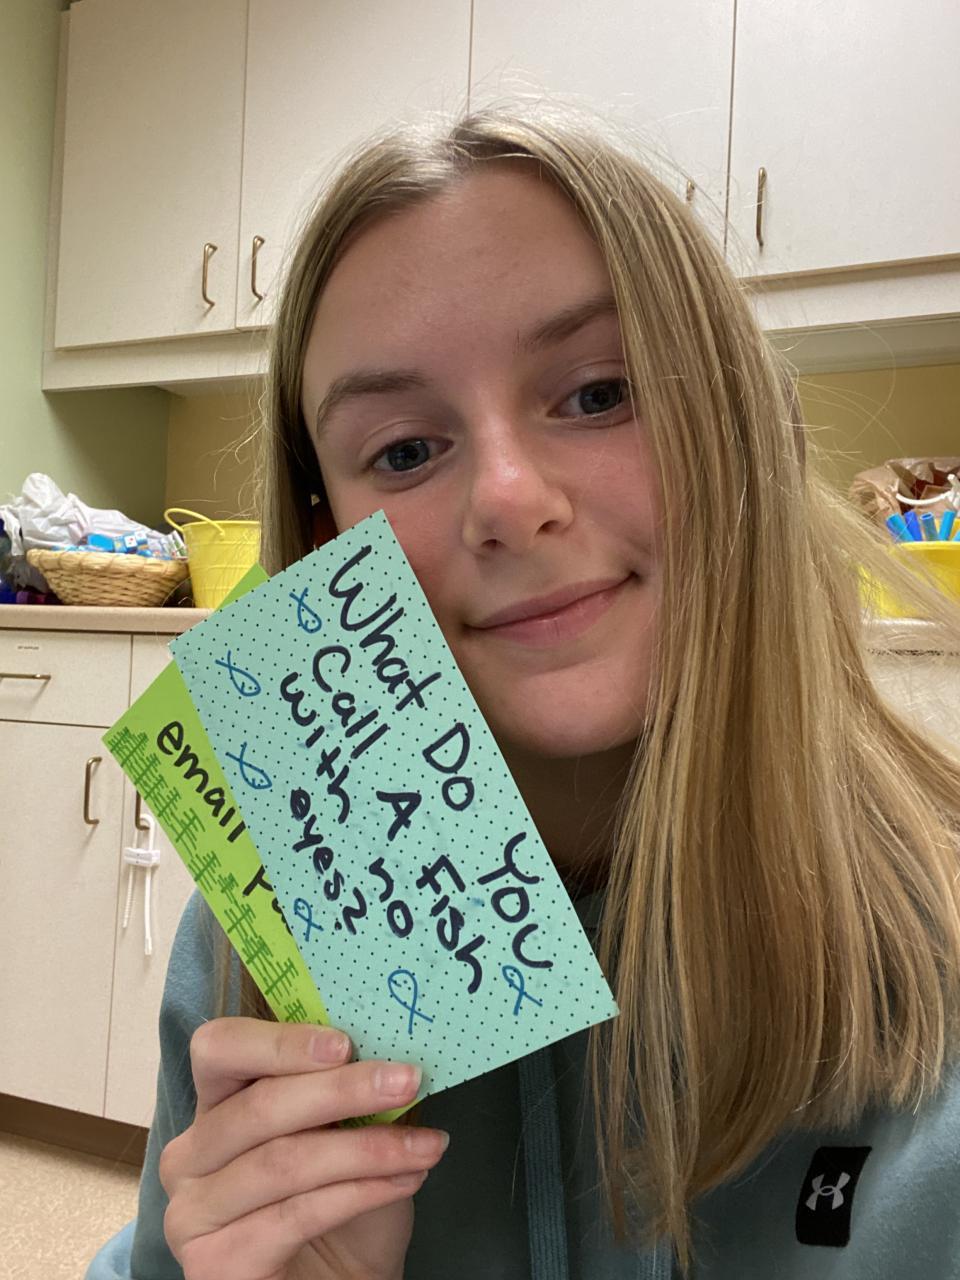 What Do You
Call A Fish
with no
eyes?
email